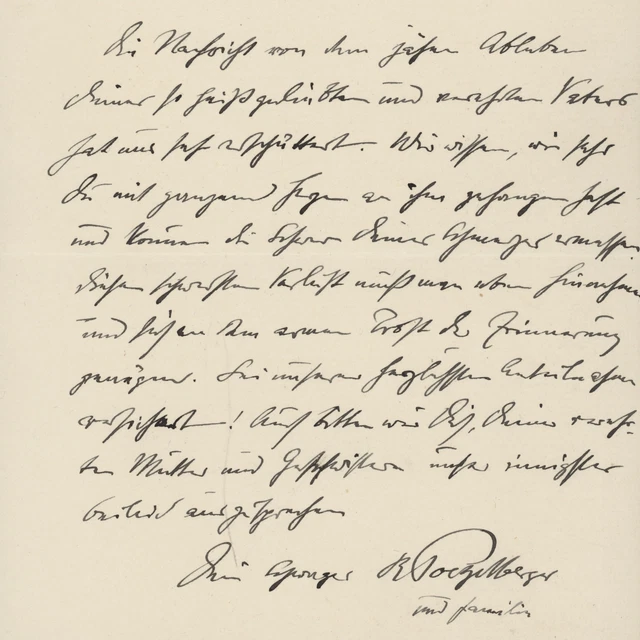 Die Nachricht von dem jähen Ableben
Deines so heißgeliebten und verehrten Vaters
hat uns sehr erschüttert. Wir wissen, wie sehr
Du mit ganzem Herzen an ihm gehangen hast
und können die Schwere Deines Schmerzes ermessen.
Diesen schwersten Verlust muß man eben hinnehmen
und sich an dem armen Trost der Erinnerung
genügen. Sei unserer herzlichsten Anteilnahme
versichert! Auch bitten wir Dich, Deiner verehr-
ten Mutter und Geschwistern unser innigstes
Beileid auszusprechen
Dein Schwager R Poetzelberger
und Familie